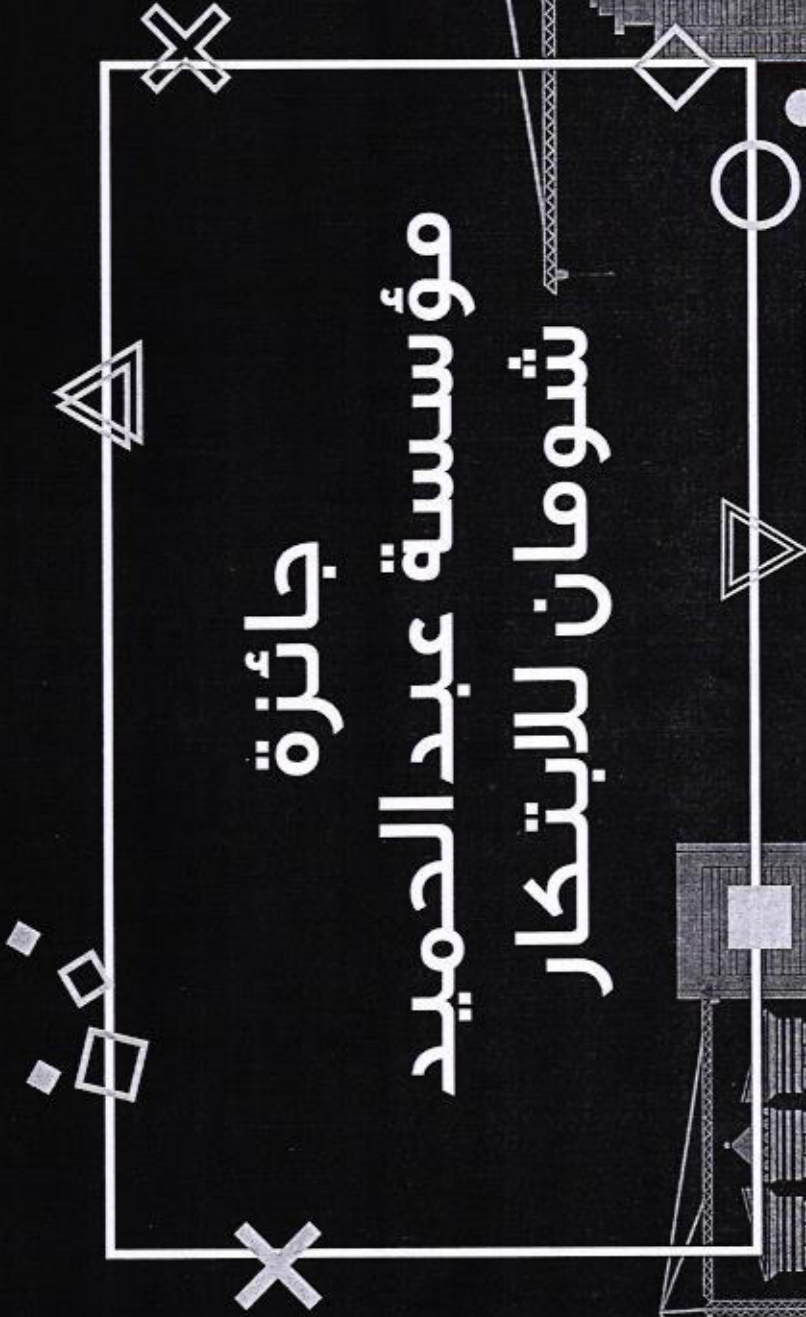 جائزة
مؤسسة عبدالحميد
شومان للابتكار